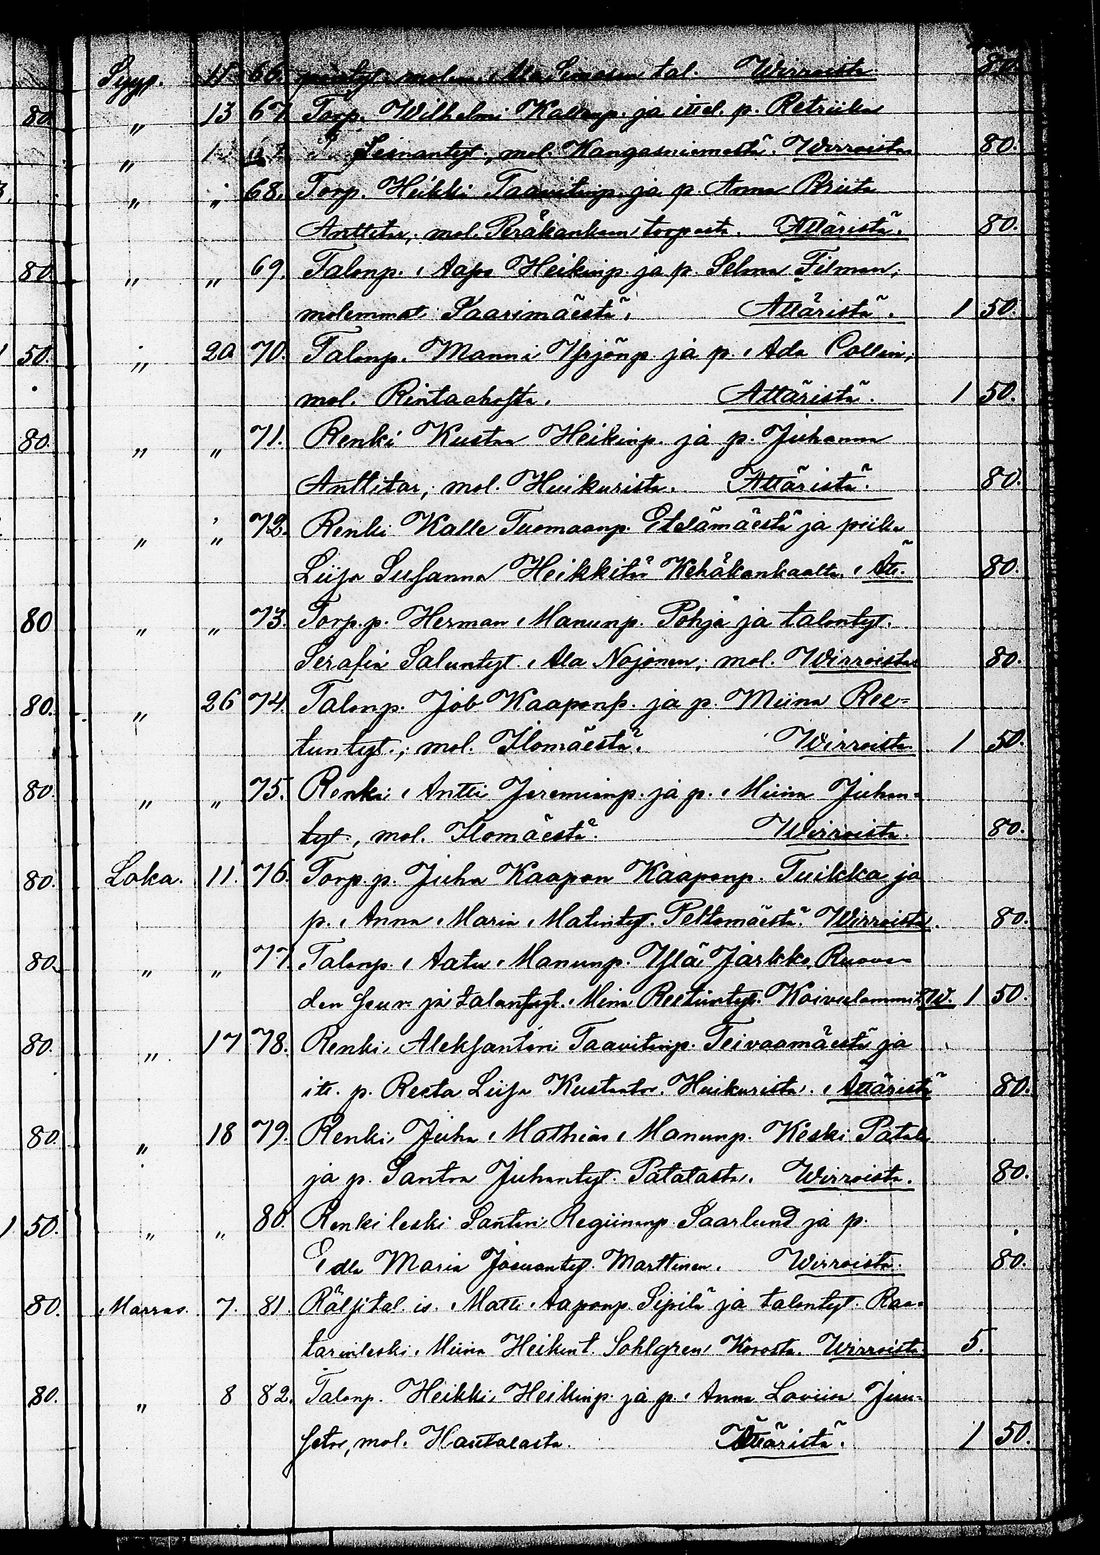 Syys. 15 66. mol. Ala tal. Wirroista 80.
80 " 13 67. Torp. Wilhelmi Kallenp. ja itsel. p. Retriika
" mol. Kangasniemestä. Wirroista 80.
" " 68. Torp. Heikki Taavitinp. ja p. Anna Briita
Anttitar, mol. Peräkankaan torpasta. Ätsäristä. 80.
80. " " 69. Talonp. Aapo Heikinp. ja p. Selma Filman,
molemmat Saarimäestä. Attäristä. 1 50.
1 50. " 20 70. Talonp. Manni Yrjönp. ja p. Ada Collin,
mol. Rintaahosta. Attäristä. 1 50.
80. " " 71. Renki Kustaa Heikinp. ja p. Juhanna
Anttitar, mol. Huikurista. Attäristä. 80.
" " 72. Renki Kalle Tuomaanp. Etelämäestä ja piika
Liisa Susanna Heikkitär Kehäkankaalta, Ät. 80.
80 " " 73. Torp.p. Herman Manunp. Pohja ja talontyt.
Serafia Saluntyt. Ala Nojonen, mol. Wirroista 80.
80. " 26 74. Talonp. Job Kaaponp. ja p. Miina Ree-
tuntyt., mol. Ilomäestä. Wirroista 1 50.
80. " " 75. Renki Antti Jeremianp. ja p. Miina Juhan-
tyt., mol. Ilomäestä. Wirroista. 80.
80. Loka. 11. 76. Torp.p. Juha Kaapon Kaaponp. Tuikka ja
p. Anna Maria Matintyt. Peltomäestä. Wirroista. 80.
80. " " 77. Talonp. Aatu Manunp. Ylä Jarkko, Ruove-
den seur. ja talontyt. Miina Reetuntyt. Koivulammi W. 1 50.
80. " 17 78. Renki Aleksanteri Taavitinp. Teivaamäestä ja
its. p. Reeta Liisa Kustaatar Huikurista. Attäristä 80.
80. " 18 79. Renki Juha Mathias Manunp. Keski Patala
ja p. Santra Juhantyt. Patalasta. Wirroista. 80.
1 50. " " 80. Renki leski Santeri Regiinanp. Saarlund ja p.
Edla Maria Josuantyt. Marttinen. Wirroista. 80.
80. Marras. 7. 81. Räljital. is. Matti Aaponp. Sipilä ja talontyt. Raa-
tarinleski Miina Heikint. Sohlgren Korosta. Wirroista 5.
80. " 8 82. Talonp. Heikki Heikinp. ja p. Anna Loviisa Juu-
setar, mol. Hautalasta. Ätsäristä. 1 50.